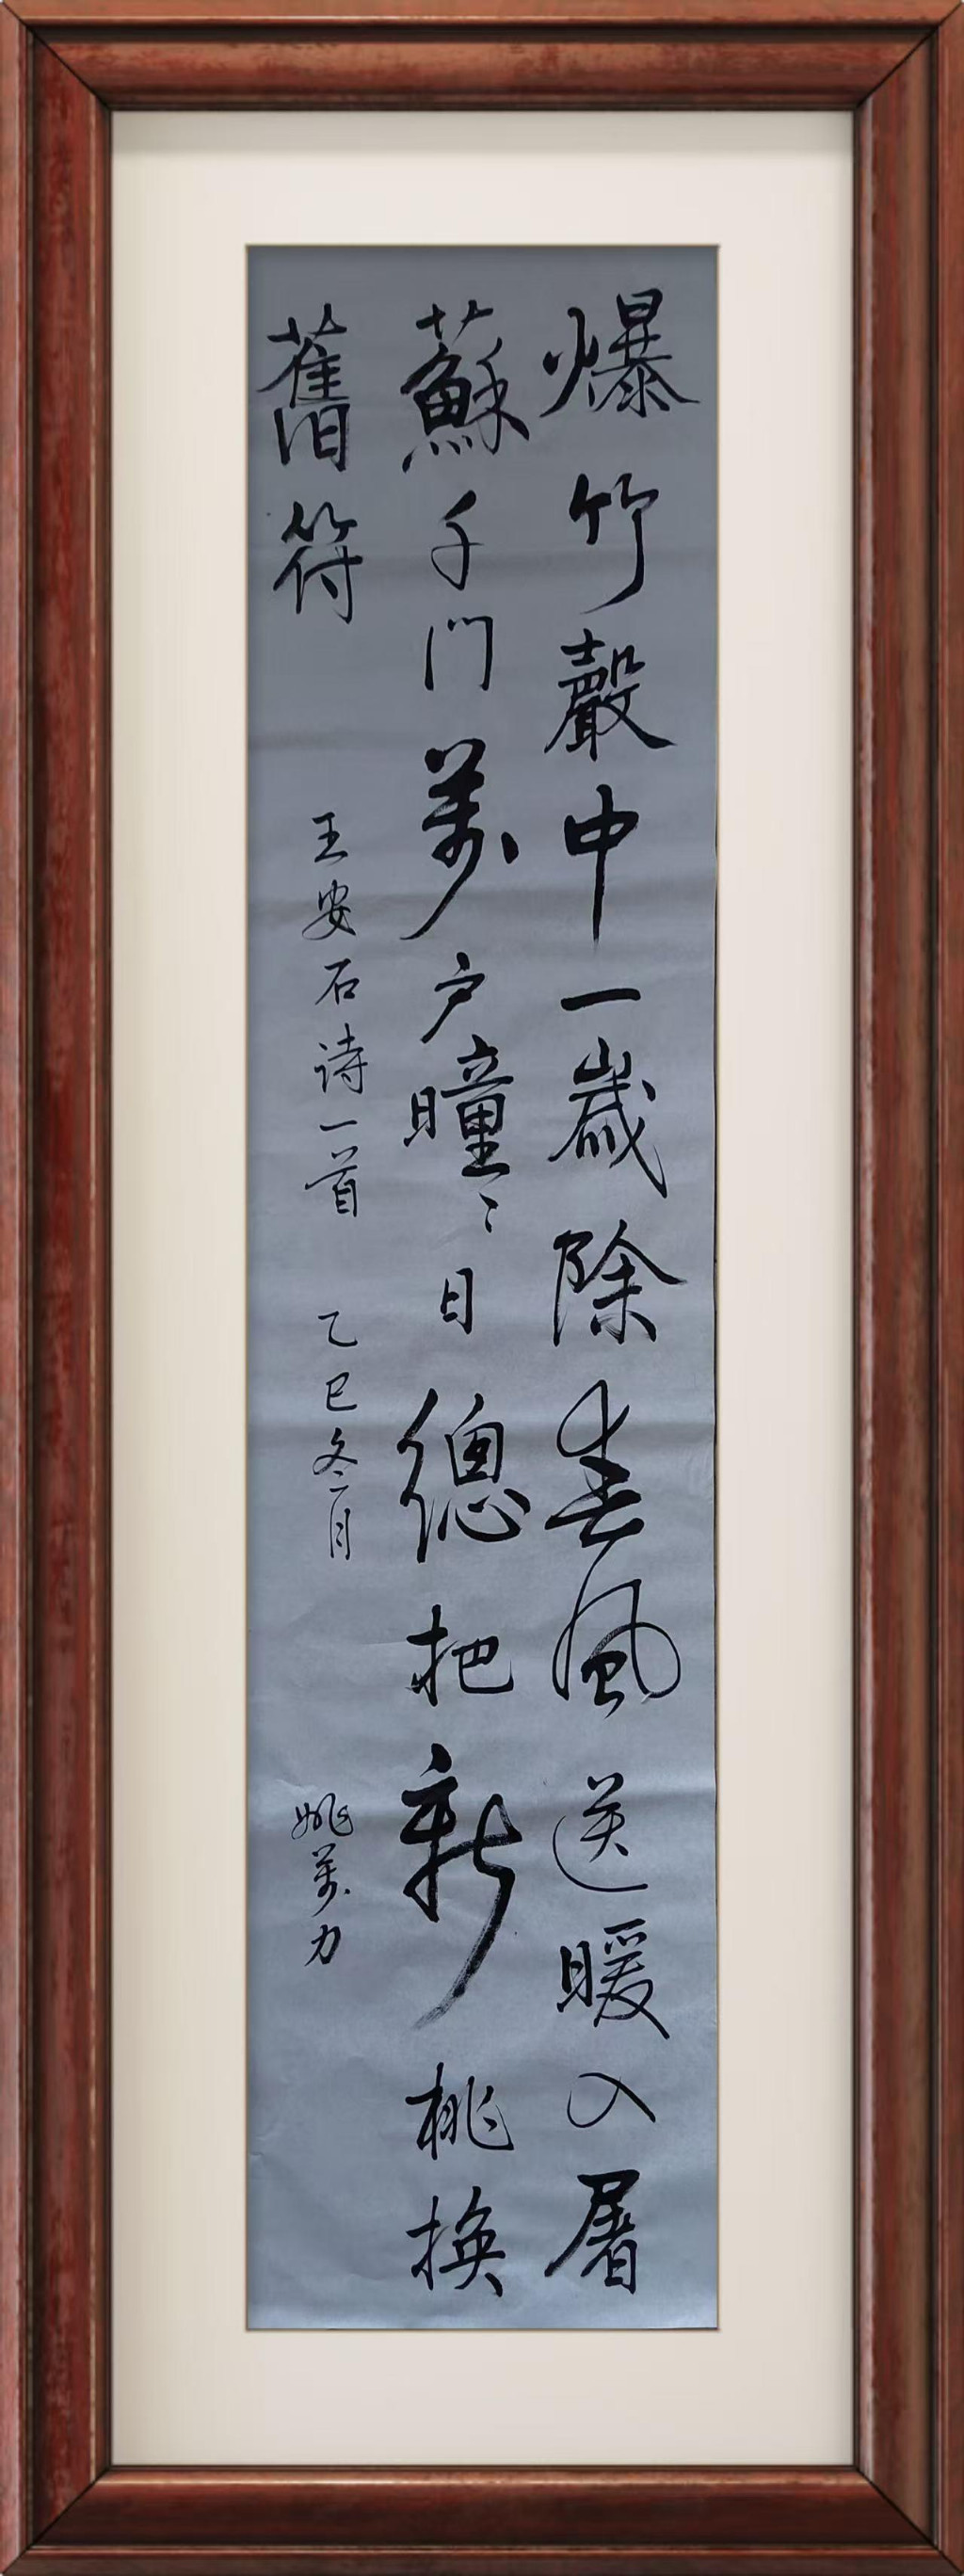 爆竹聲中一歲除春風送暖入屠
蘇千門萬戶曈〻日總把新桃換
舊符
王安石诗一首 乙巳冬月
姚萬力